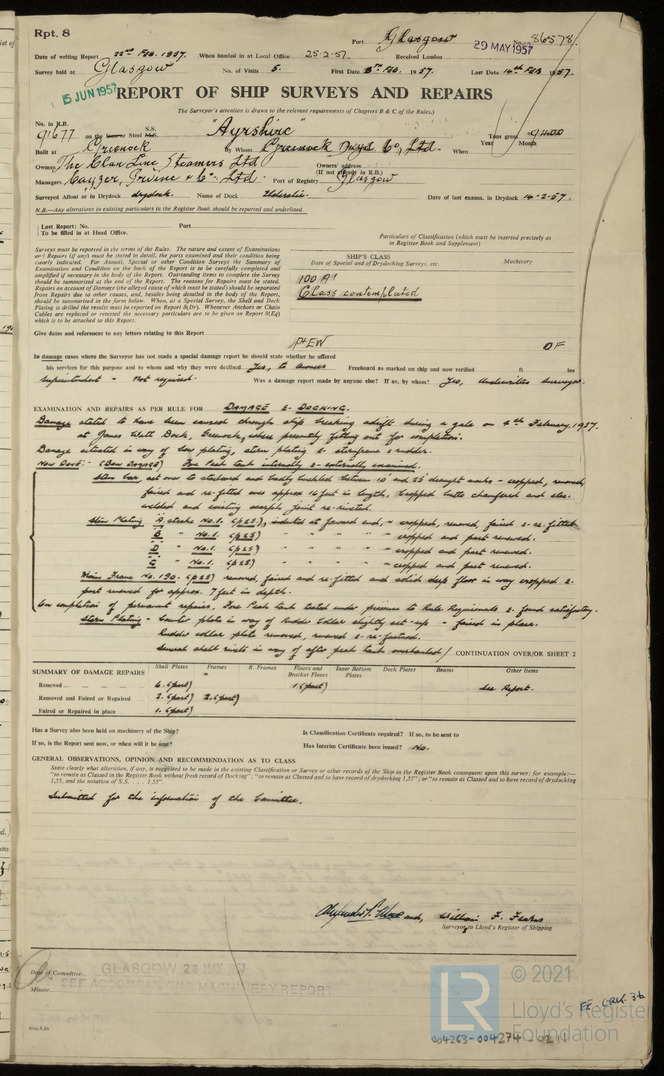 Rpt. 8
Port Glasgow No. 86578
29 MAY 1957
Date of writing Report 22nd Feb. 1957. When handed in at Local Office 25-2-57. Received London
Survey held at Glasgow No. of Visits 5. First Date 5th Feb. 1957. Last Date 14th Feb 1957.
15 JUN 1957
REPORT OF SHIP SURVEYS AND REPAIRS
(The Surveyor's attention is drawn to the relevant requirements of Chapters B & C of the Rules.)
No. in R.B. S.S.
91677 on the Iron or Steel M.S. "Ayrshire" Tons gross 9400
Built at Greenock By Whom Greenock Dnyd Co., Ltd. When Year Month
Owners The Clan Line Steamers Ltd Owners' address (If not already in R.B.)
Managers Cayzer, Irvine & Co. Ltd. Port of Registry Glasgow
Surveyed Afloat or in Drydock drydock. Name of Dock Elderslie. Date of last exams. in Drydock 14-2-57.
N.B.—Any alterations in existing particulars in the Register Book should be reported and underlined.
Last Report: No. Port
To be filled in at Head Office.
Particulars of Classification (which must be inserted precisely as
in Register Book and Supplement)
SHIP'S CLASS
Date of Special and of Drydocking Surveys, etc. Machinery
Surveys must be reported in the terms of the Rules. The nature and extent of Examinations
or Repairs (if any) must be stated in detail, the parts examined and their condition being
clearly indicated. For Annual, Special or other Condition Surveys the Summary of
Examination and Condition on the back of the Report is to be carefully completed and
amplified if necessary in the body of the Report. Outstanding items to complete the Survey
should be summarized at the end of the Report. The reasons for Repairs must be stated.
Repairs on account of Damage (the alleged cause of which must be stated) should be separated
from Repairs due to other causes, and, besides being detailed in the body of the Report,
should be summarized in the form below. When, at a Special Survey, the Shell and Deck
Plating is drilled the results must be reported on Report 8(Dr). Whenever Anchors or Chain
Cables are replaced or retested the necessary particulars are to be given on Report 8(Eq)
which is to be attached to this Report.
100 A1
Class contemplated
Give dates and references to any letters relating to this Report
pt EW OF
In damage cases where the Surveyor has not made a special damage report he should state whether he offered
his services for this purpose and to whom and why they were declined. Yes, to owners Freeboard as marked on ship and now verified ft ins
superintendent - Not required. Was a damage report made by anyone else? If so, by whom? Yes, Underwriters surveyor.
EXAMINATION AND REPAIRS AS PER RULE FOR DAMAGE & DOCKING.
Damage stated to have been caused through ship breaking adrift during a gale on 4th February, 1957.
at James Watt Dock, Greenock, where presently fitting out for completion.
Damage situated in way of bow plating, stern plating & sternframe & rudder.
Now Done:- (Bow Damage) Fore Peak tank internally & externally examined.
Stem bar, set over to starboard and badly buckled between 10 and 23 draught marks - cropped, removed,
faired and re-fitted over approx 16 feet in length, Cropped butts chamfered and elec.
welded and existing scarph joint re-riveted.
Stem Plating A strake No. 1. (p&s), indented at forward end, - cropped, removed, faired & re-fitted
B " No. 1. (p&s) " " " " cropped and part renewed.
D " No. 1. (p&s) " " " " cropped and part renewed.
C " No. 1. (p&s) " " " " cropped and part renewed.
Main Frame No. 190. (p&s) removed, faired and re-fitted and solid deep floor in way cropped &
part renewed for approx. 7 feet in depth.
On completion of permanent repairs, Fore Peak tank tested under pressure to Rule Requirements & found satisfactory.
Stern Plating - Lower plate in way of Rudder Collar slightly set-up - faired in place.
Rudder collar plate removed, renewed & re-fastened.
Several shell rivets in way of after peak tank overhauled / CONTINUATION OVER/OR SHEET 2
SUMMARY OF DAMAGE REPAIRS Shell Plates Frames R. Frames Floors and Bracket Floors Inner Bottom Plates Deck Plates Beams Other Items
Renewed 6. (part) 1. (part) See Report.
Removed and Faired or Repaired 2. (part) 2. (part)
Faired or Repaired in place 1. (part)
Has a Survey also been held on machinery of the Ship? Is Classification Certificate required? If so, to be sent to
If so, is the Report sent now, or when will it be sent? Has Interim Certificate been issued? No.
GENERAL OBSERVATIONS, OPINION AND RECOMMENDATION AS TO CLASS
State clearly what alteration, if any, is suggested to be made in the existing Classification or Survey or other records of the Ship in the Register Book consequent upon this survey, for example:—
"to remain as Classed in the Register Book without fresh record of Docking"; "to remain as Classed and to have record of drydocking 1,55"; or "to remain as Classed and to have record of drydocking
1,55, and the notation of S.S. . . . 1,55".
Submitted for the information of the Committee.
and, William F.
Surveyor to Lloyd's Register of Shipping
Date of Committee
Minute
GLASGOW 28 MAY 1957
SEE ACCOMPANYING MACHINERY REPORT
LR © 2021
Lloyd's Register
Foundation
004263-004274-0211